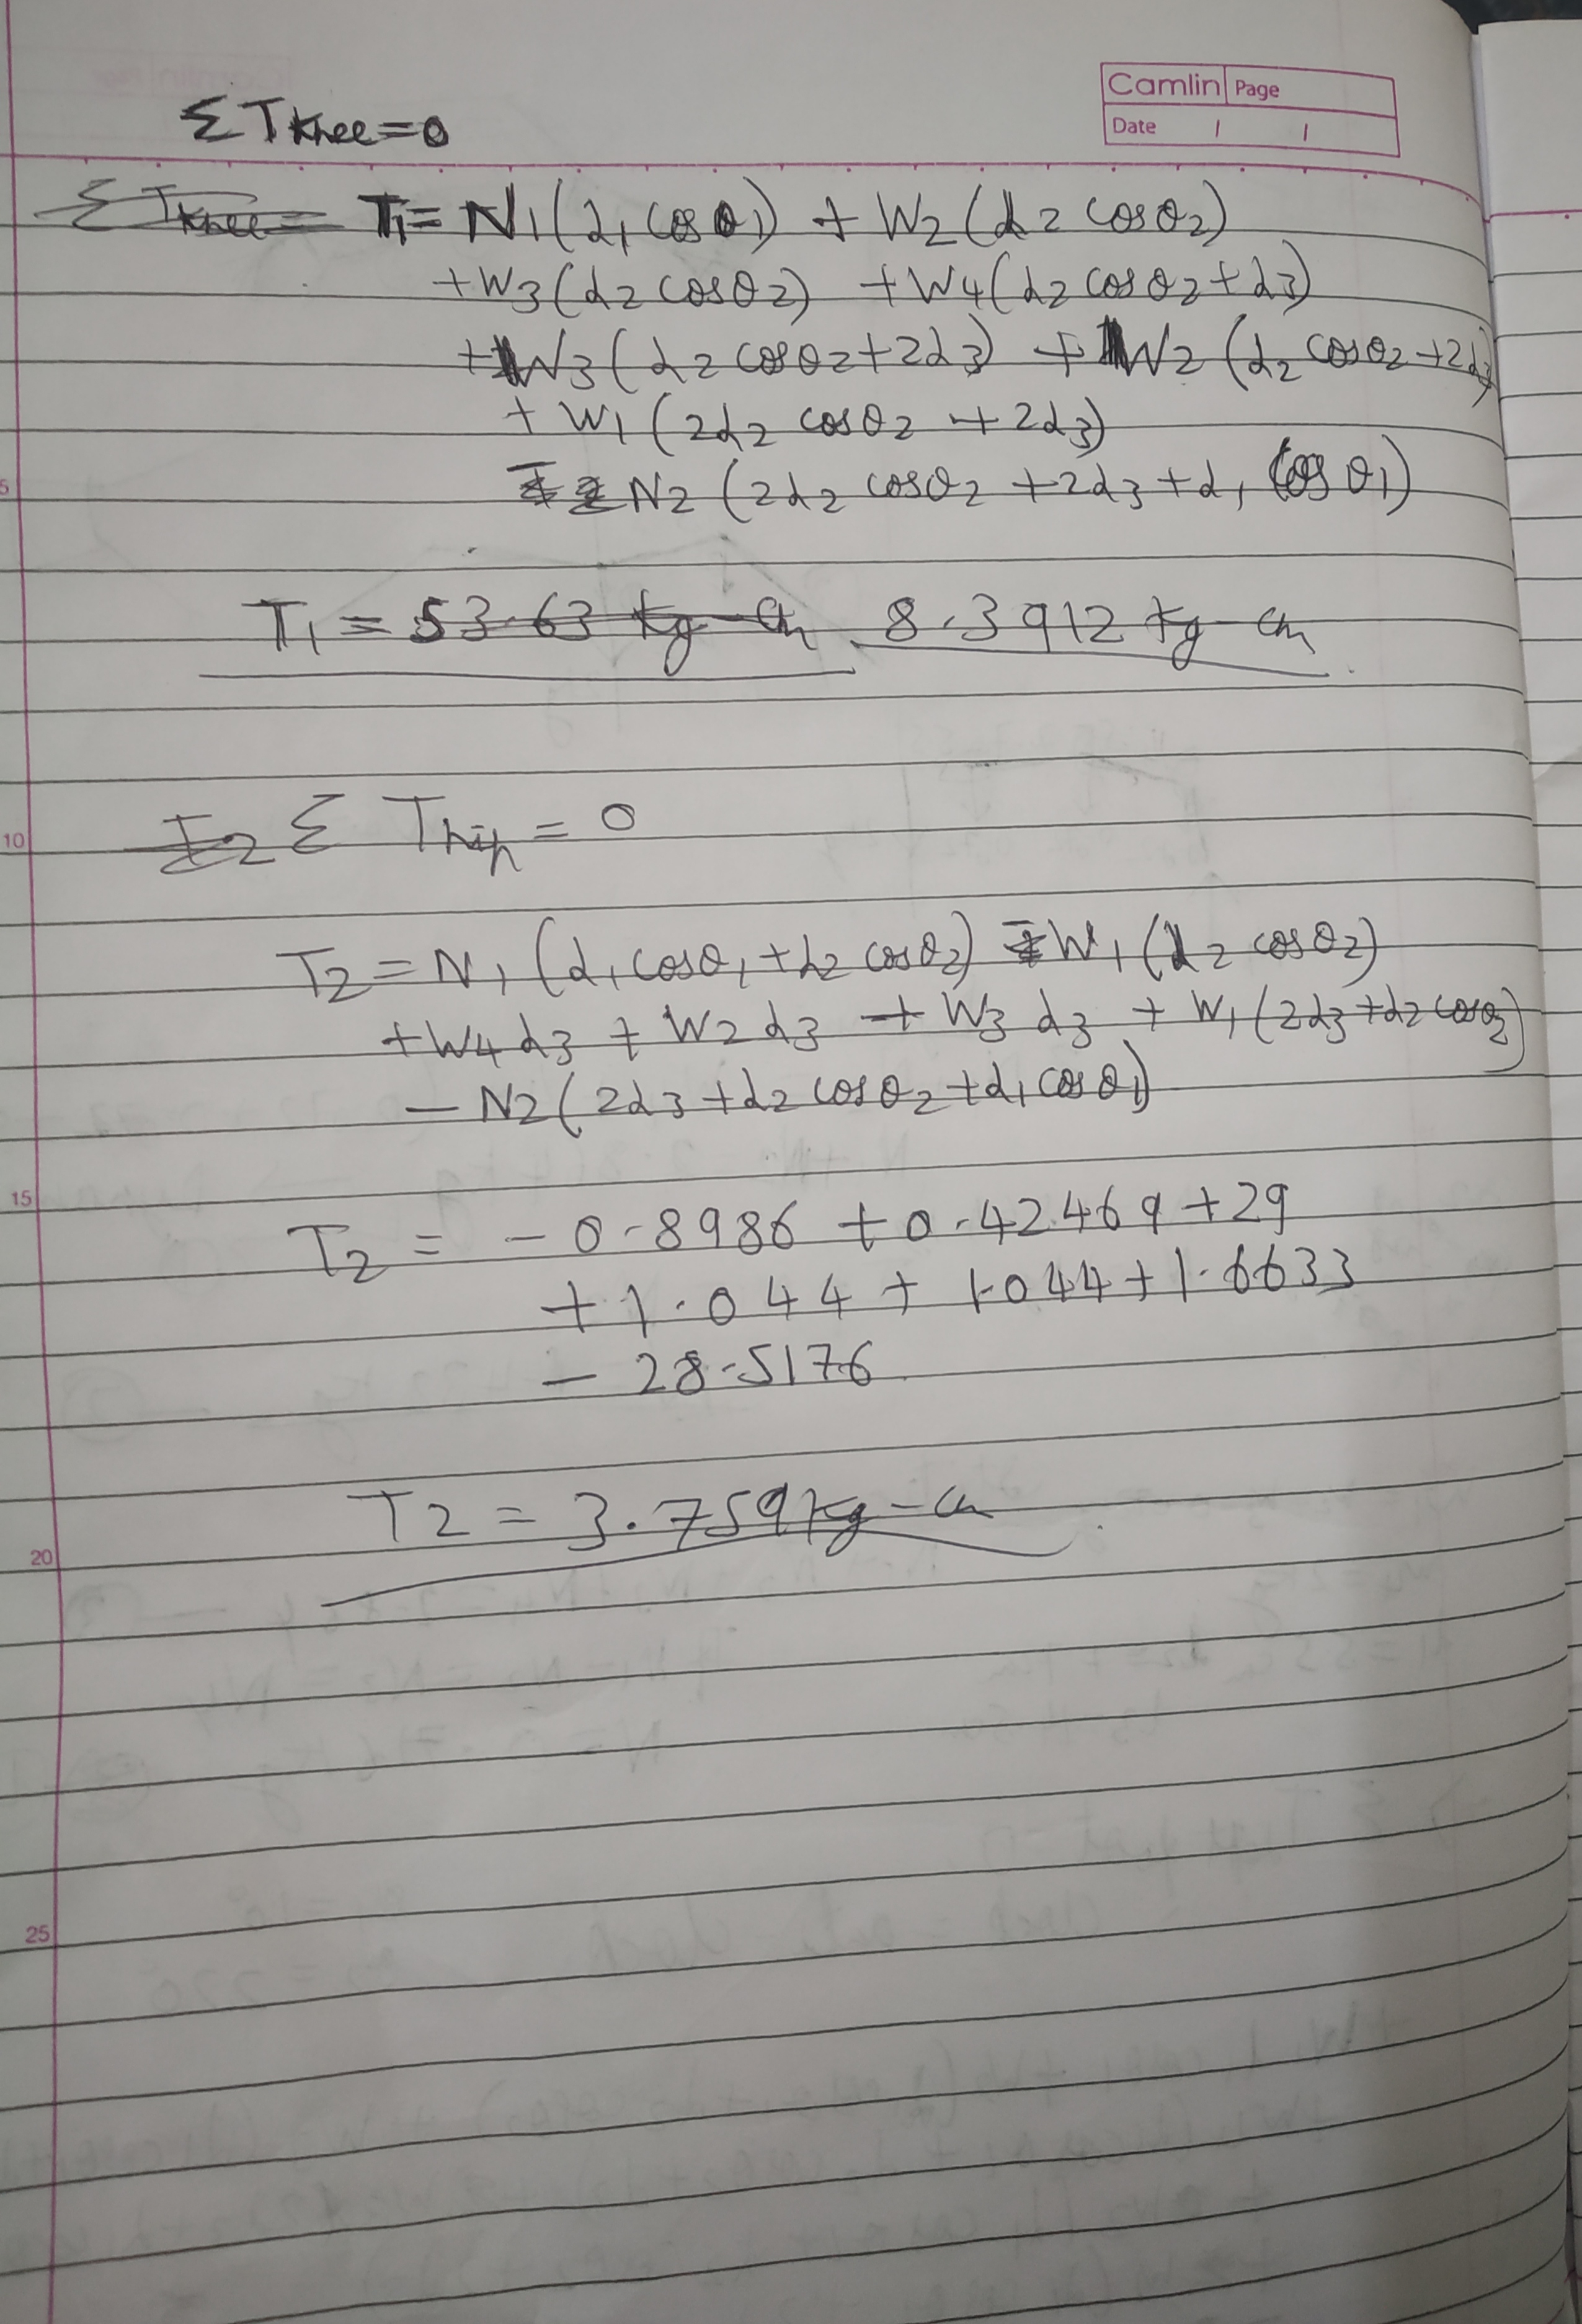 Camlin Page
Date / /
ΣTknee=0
ΣTknee= T1= N1(d1 cosθ1) + W2(d2 cosθ2)
+W3(d2 cosθ2) +W4(d2 cosθ2+d3)
+W3(d2 cosθ2+2d3) + W2(d2 cosθ2+2d3)
+ W1(2d2 cosθ2 + 2d3)
5
- N2(2d2 cosθ2 +2d3+d1 cosθ1)
T1 = 53.63 kg-cm 8.3912 kg-cm
10
T2 Σ Thip = 0
T2 = N1(d1 cosθ1+d2 cosθ2) - W1(d2 cosθ2)
+W4d3 + W2d3 + W3d3 + W1(2d3+d2 cosθ2)
- N2(2d3+d2 cosθ2+d1 cosθ1)
15
T2 = - 0.8986 + 0.42469+29
+ 1.044 + 1.044+1.6633
- 28.5176
T2 = 3.759kg-cm
20
25